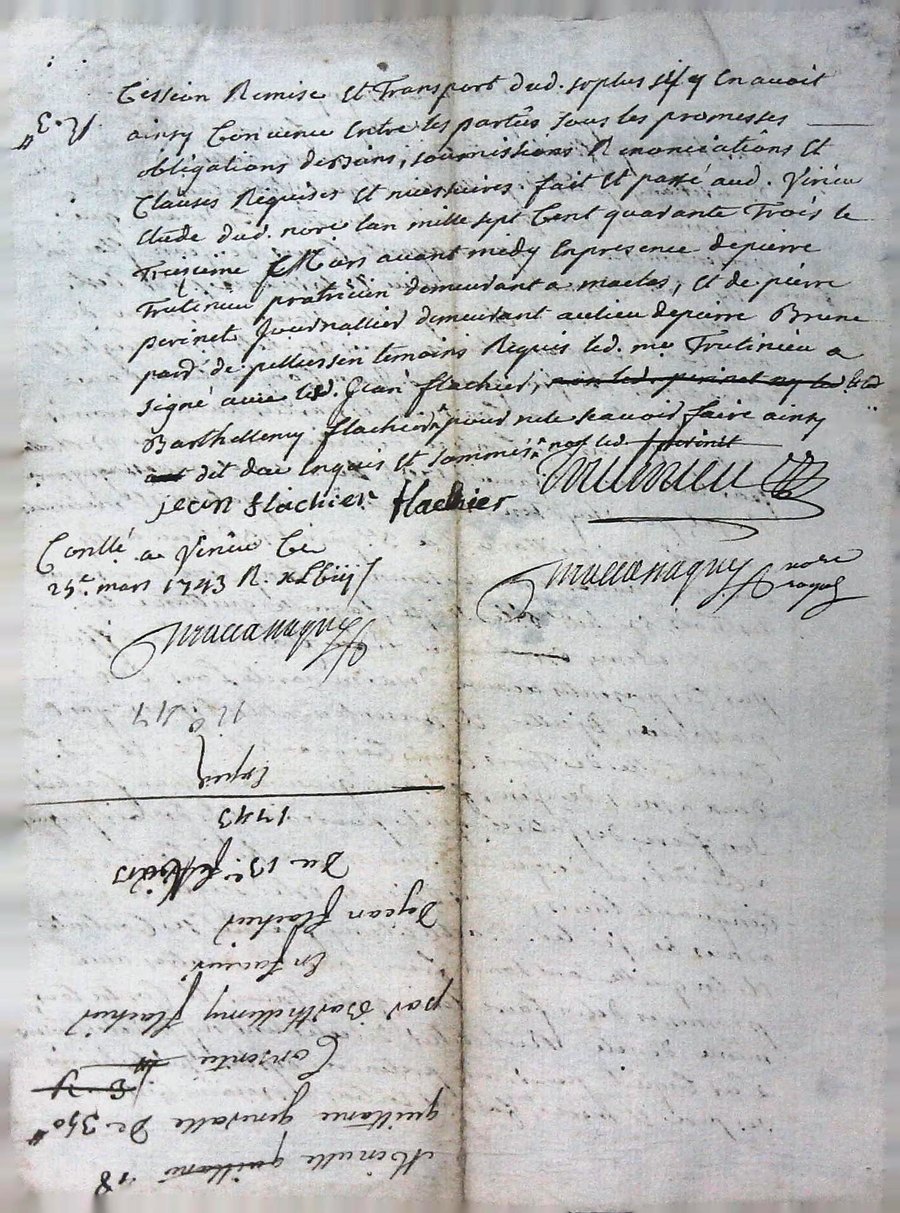 Cession Remise et Transport dud. soplus sil y en avoit
R. 3
ainsy Convenu Entre les parties sous les promesses
obligations de biens, soumissions Renonciations et
Clauses Requises et nécéssaires. fait et passé aud. Virieu
Etude dud. nore lan mille sept Cent quarante Trois le
Treizieme Mars avant midy En presence de pierre
praticien demeurant a maclas, et de pierre
perinet Journallier demeurant au lieu de pierre Brune
parr de pellussin temoins Requis led. me a
signé avec led. Jean flachier, non led. perinet ny led led
Barthellemy flachier pour ne le scavoir faire ainsy
dit de ce Enquis et sommés non led perinet
jean flachier flachier
Conllé a Virieu Ce
25e. mars 1743 R.
nore
royal
n° 17
Expié
1743
Du 13e. Mars
De jean flachier
En faveur
par Barthellemy flachier
Consentie
quittance generalle De 350
Minutte quittance 18